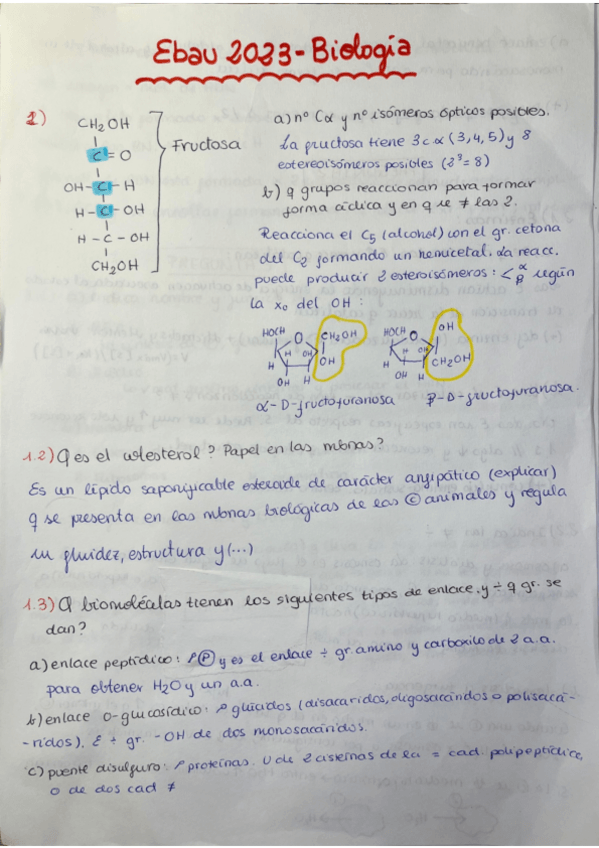 Ebau 2023 - Biología
1)
CH₂OH
C = O
OH - C - H
H - C - OH
H - C - OH
CH₂OH
Fructosa
a) nº Cα y nº isómeros ópticos posibles.
La fructosa tiene 3 cα (3,4,5) y 8
estereoisómeros posibles (2³ = 8)
b) q grupos reaccionan para formar
forma cíclica y en q se ≠ las 2.
Reacciona el C₅ (alcohol) con el gr. cetona
del C₂ formando un hemicetal. La reacc.
puede producir 2 esteroisómeros: < α β según
la xo del OH:
HOCH O CH₂OH
H OH OH
H
OH H
α-D-fructofuranosa
HOCH O OH
H OH CH₂OH
H
OH H
β-D-fructofuranosa.
1.2) Q es el colesterol? Papel en las mbnas?
Es un lípido saponificable esteroide de carácter anfipático (explicar)
q se presenta en las mbnas biológicas de las © animales y regula
su fluidez, estructura y (...)
1.3) Q biomoléculas tienen los siguientes tipos de enlace, y ÷ q gr. se
dan?
a) enlace peptídico: Ⓟ y es el enlace ÷ gr. amino y carboxilo de 2 a.a.
para obtener H₂O y un a.a.
b) enlace O-glucosídico: glúcidos (disacáridos, oligosacáridos o polisacá-
-ridos). ÷ gr. -OH de dos monosacáridos.
c) puente disulfuro: proteínas. U de 2 cisternas de la = cad. polipeptídica,
o de dos cad ≠